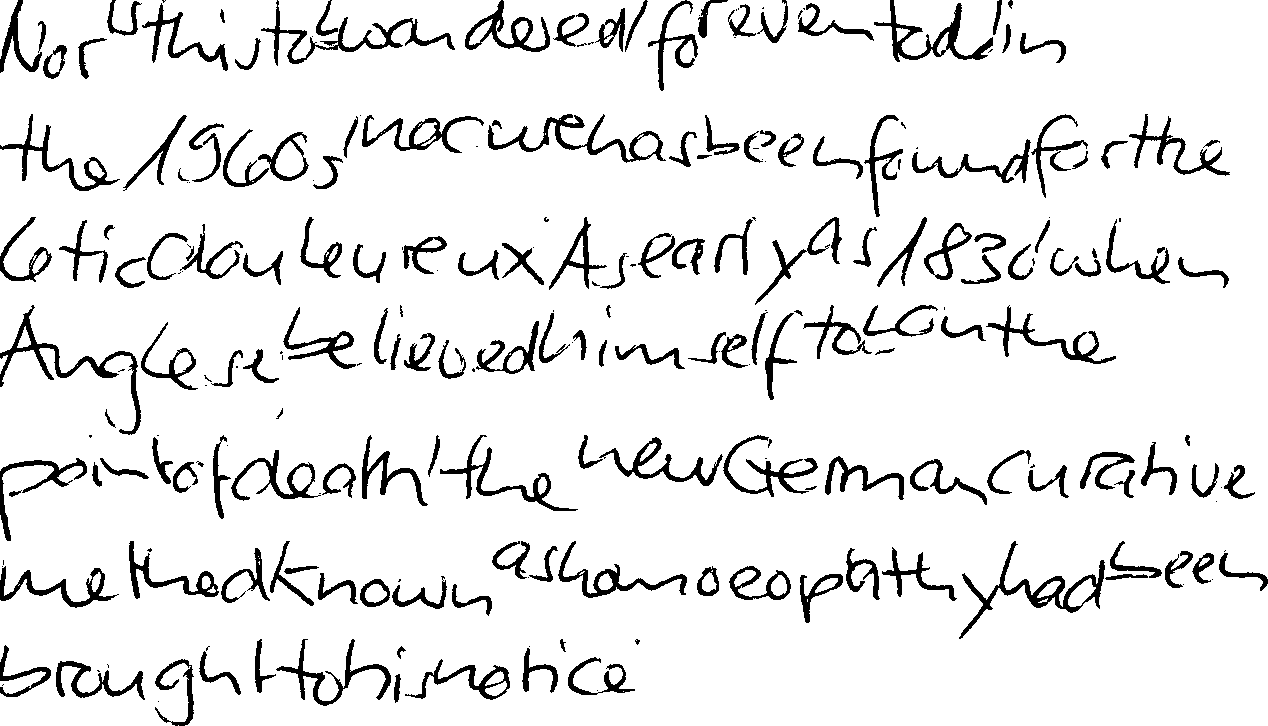 Nor is this to be wondered for even today in
the 1960s, no cure has been found for the
tic douloureux. As early as 1830, when
Anglese believed himself to be on the
point of death, the new German curative
method known as homoeopathy had been
brought to his notice.